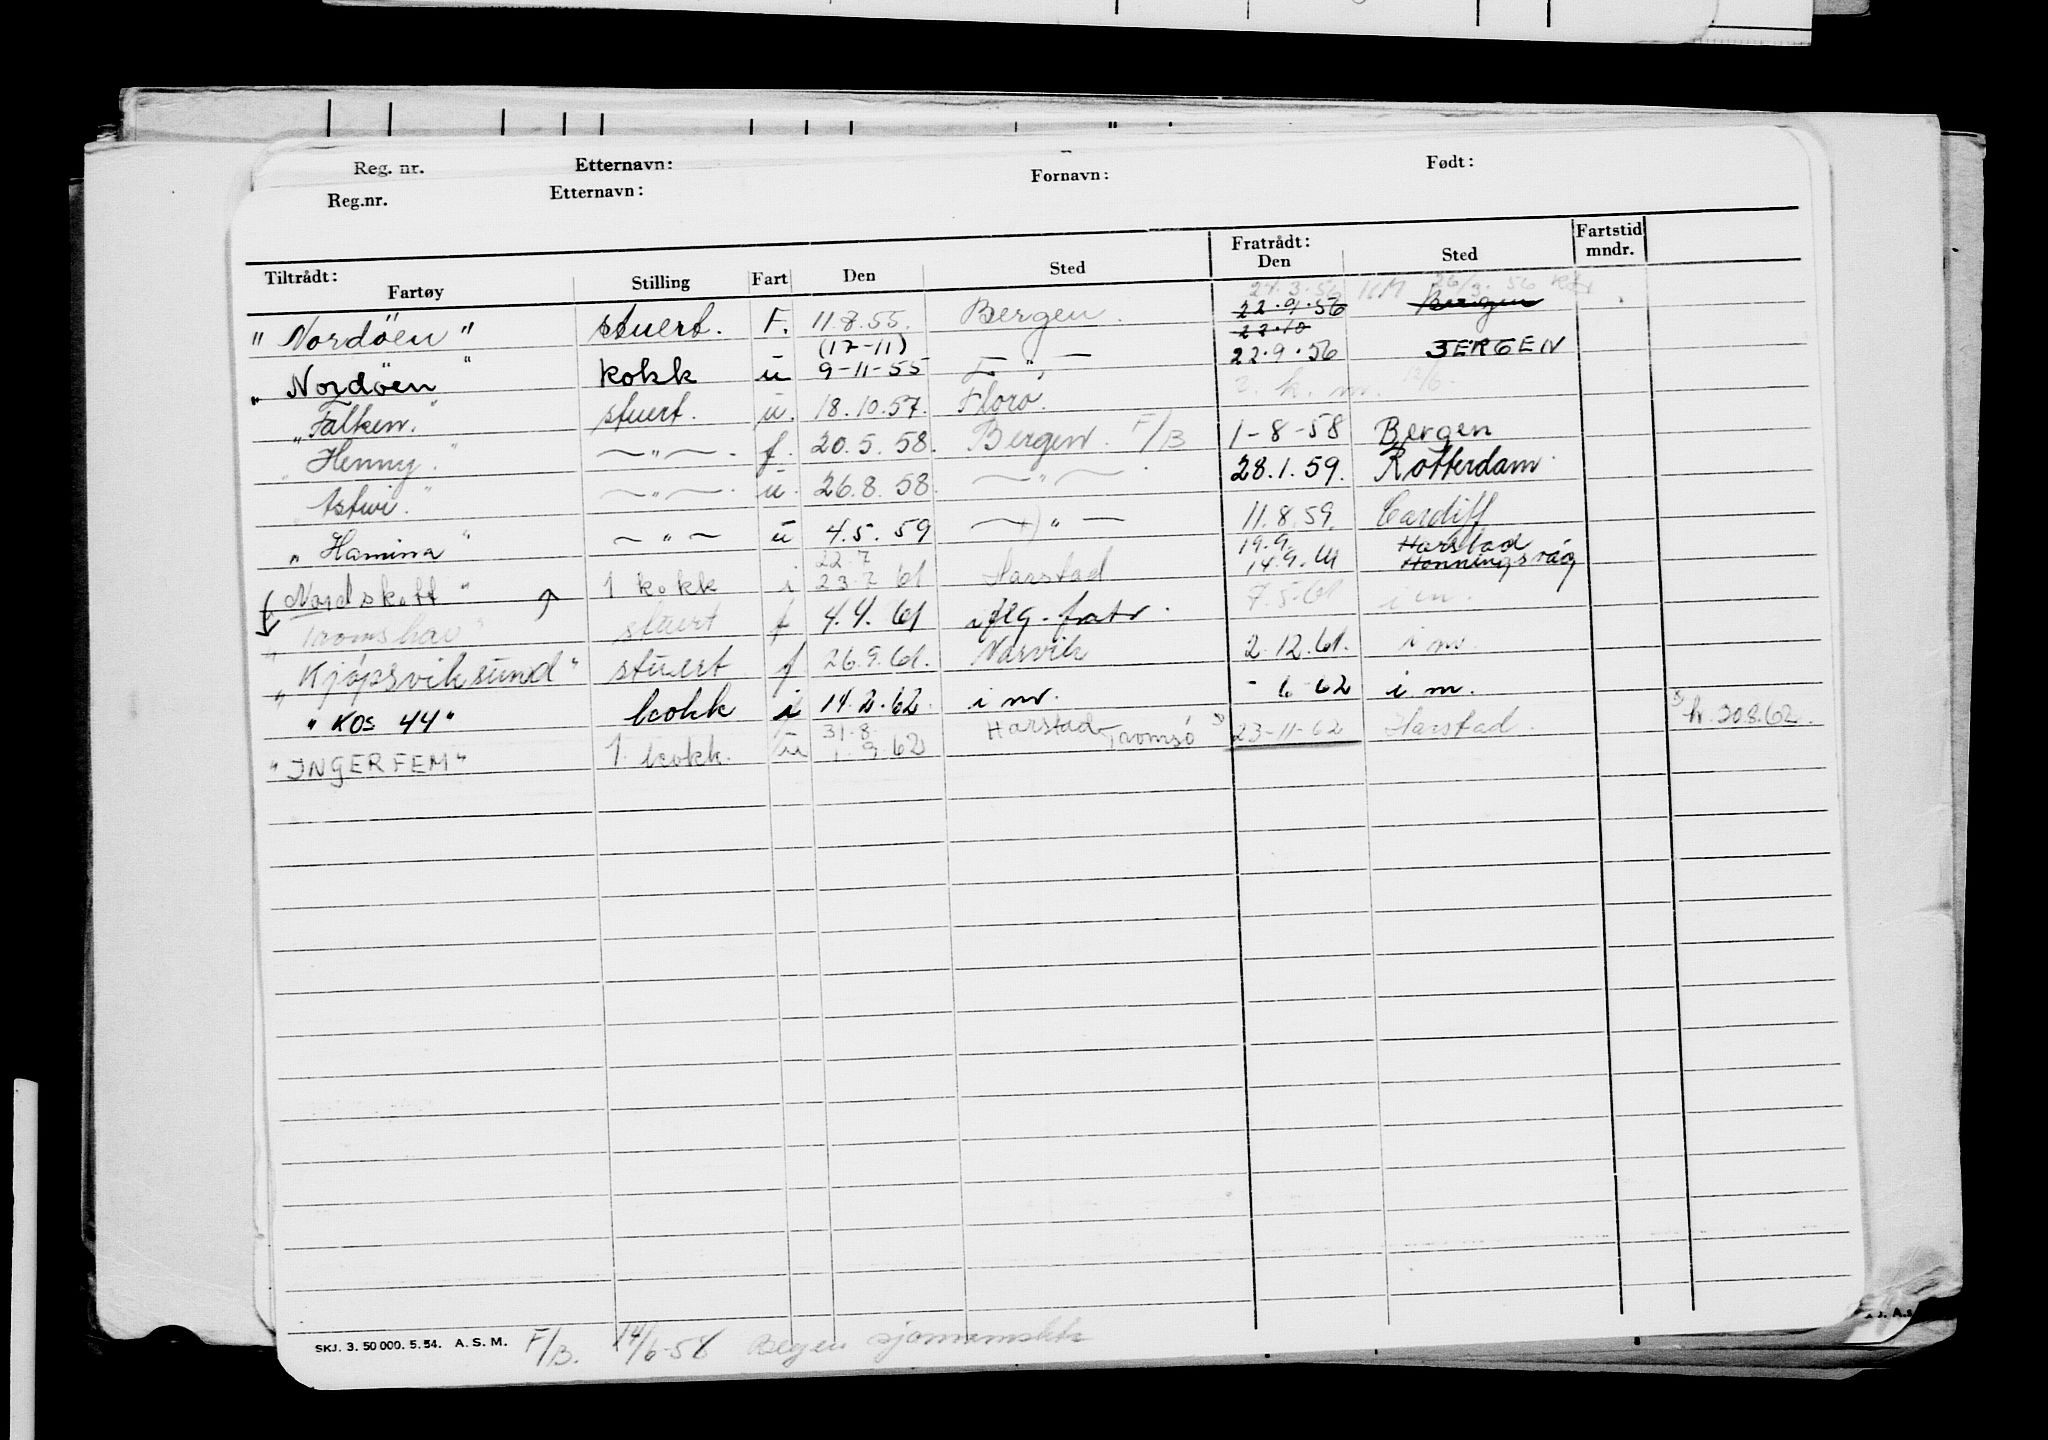 Reg. nr. Etternavn: Født:
Reg.nr. Etternavn: Fornavn:
Tiltrådt: Fratrådt: Fartstid
Fartøy Stilling Fart Den Sted Den Sted mndr.
27.3.56 26/3.56
"Nordöen" stuert. F. 11.8.55. Bergen. 22.9.56 Bergen
(17-11) 22.10
"Nordöen" kokk u 9-11-55 — " — 22.9.56 BERGEN
"Falken." stuert. u. 18.10.57. Florö. 3. k. m. 12/6.
"Henny." — " — . f. 20.5.58. Bergen. F/B 1-8-58 Bergen
" — " — . u. 26.8.58. — " — 28.1.59. Rotterdam.
"Hamina" — " — u 4.5.59 — " — 11.8.59. Cardiff
22.7 19.9. Harstad
"Nordskott" 1 kokk i 23.7 61 Harstad 14.9.61 Honningsvåg
"Tromshav" stuert f 4.4.61 iflg. fratr. 7.5.61 i m.
"Kjøpsviksund" stuert f 26.9.61. Narvik 2.12.61. i m.
"KOS 44" kokk i 14.2.62. i m. - 6-62 i m.
31.8 Harstad
"INGERFEM" 1. kokk. u 1.9.62 Tromsö 23-11-62 Harstad. k. 20.8.62.
SKJ. 3. 50 000. 5. 54. A. S. M. F/B. 14/6-58 Bergen